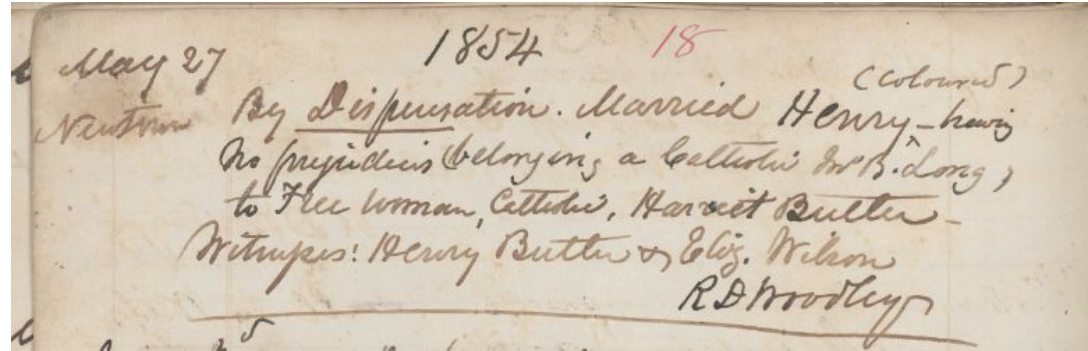 1854 18
May 27 (Coloured)
Newtown By Dispensation. Married Henry - having
no prejudices (belonging a Catholic Mr B. Long)
to Free woman, Catholic, Harriet Butler -
Witnesses: Henry Butler & Eliz. Wilson
R D Woodley